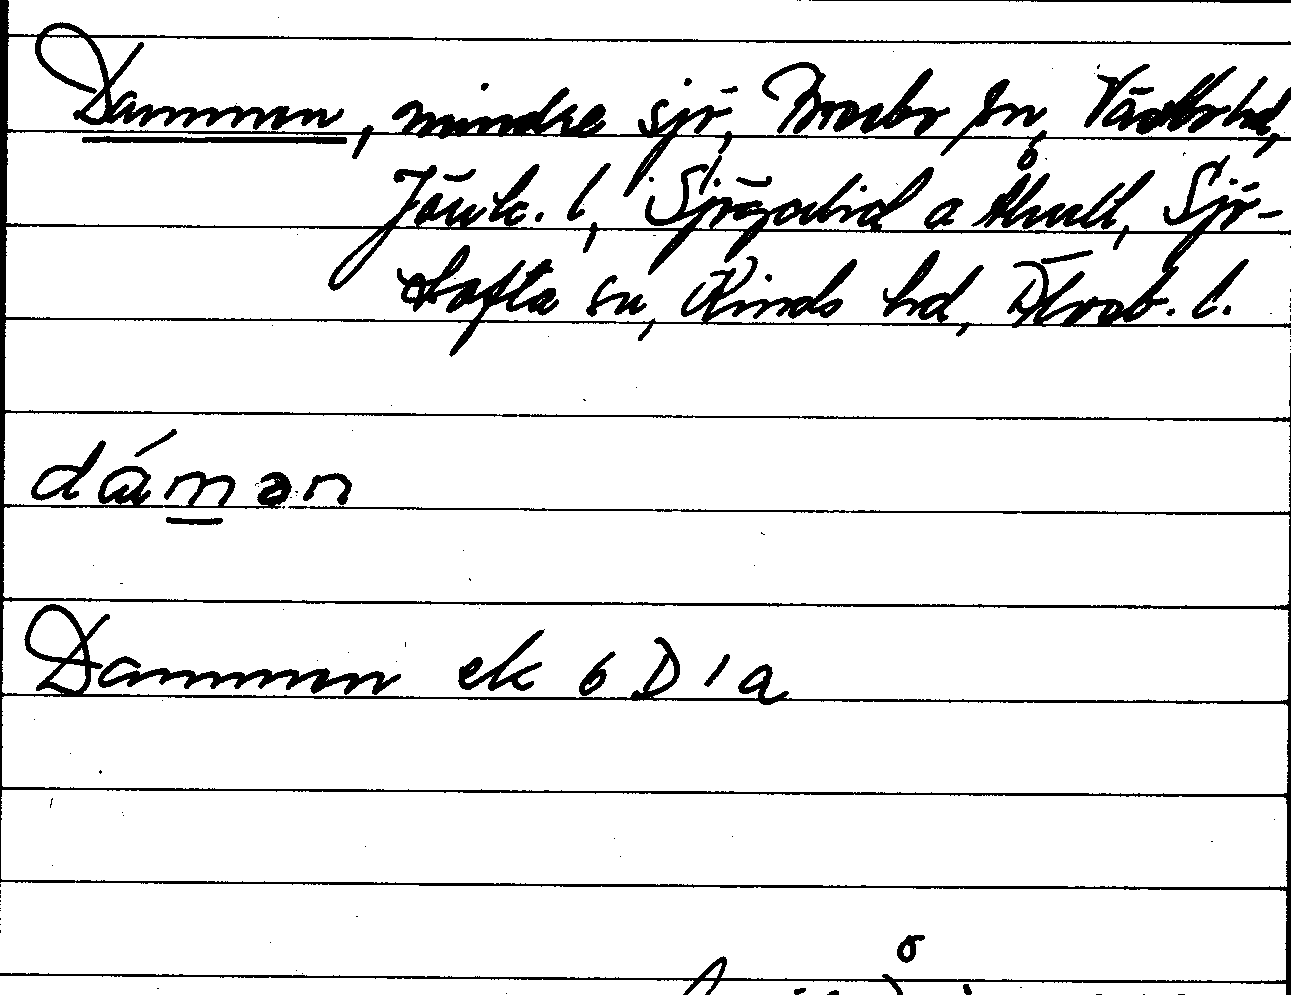 Dammen, mindre sjö, sn, Västbo hd,
Jönk. l, Sjögärdid a Ahult, Sjö-
tofta sn, Kinds hd, Älvsb. l.
dámən
Dammen ek 6 D 1 a